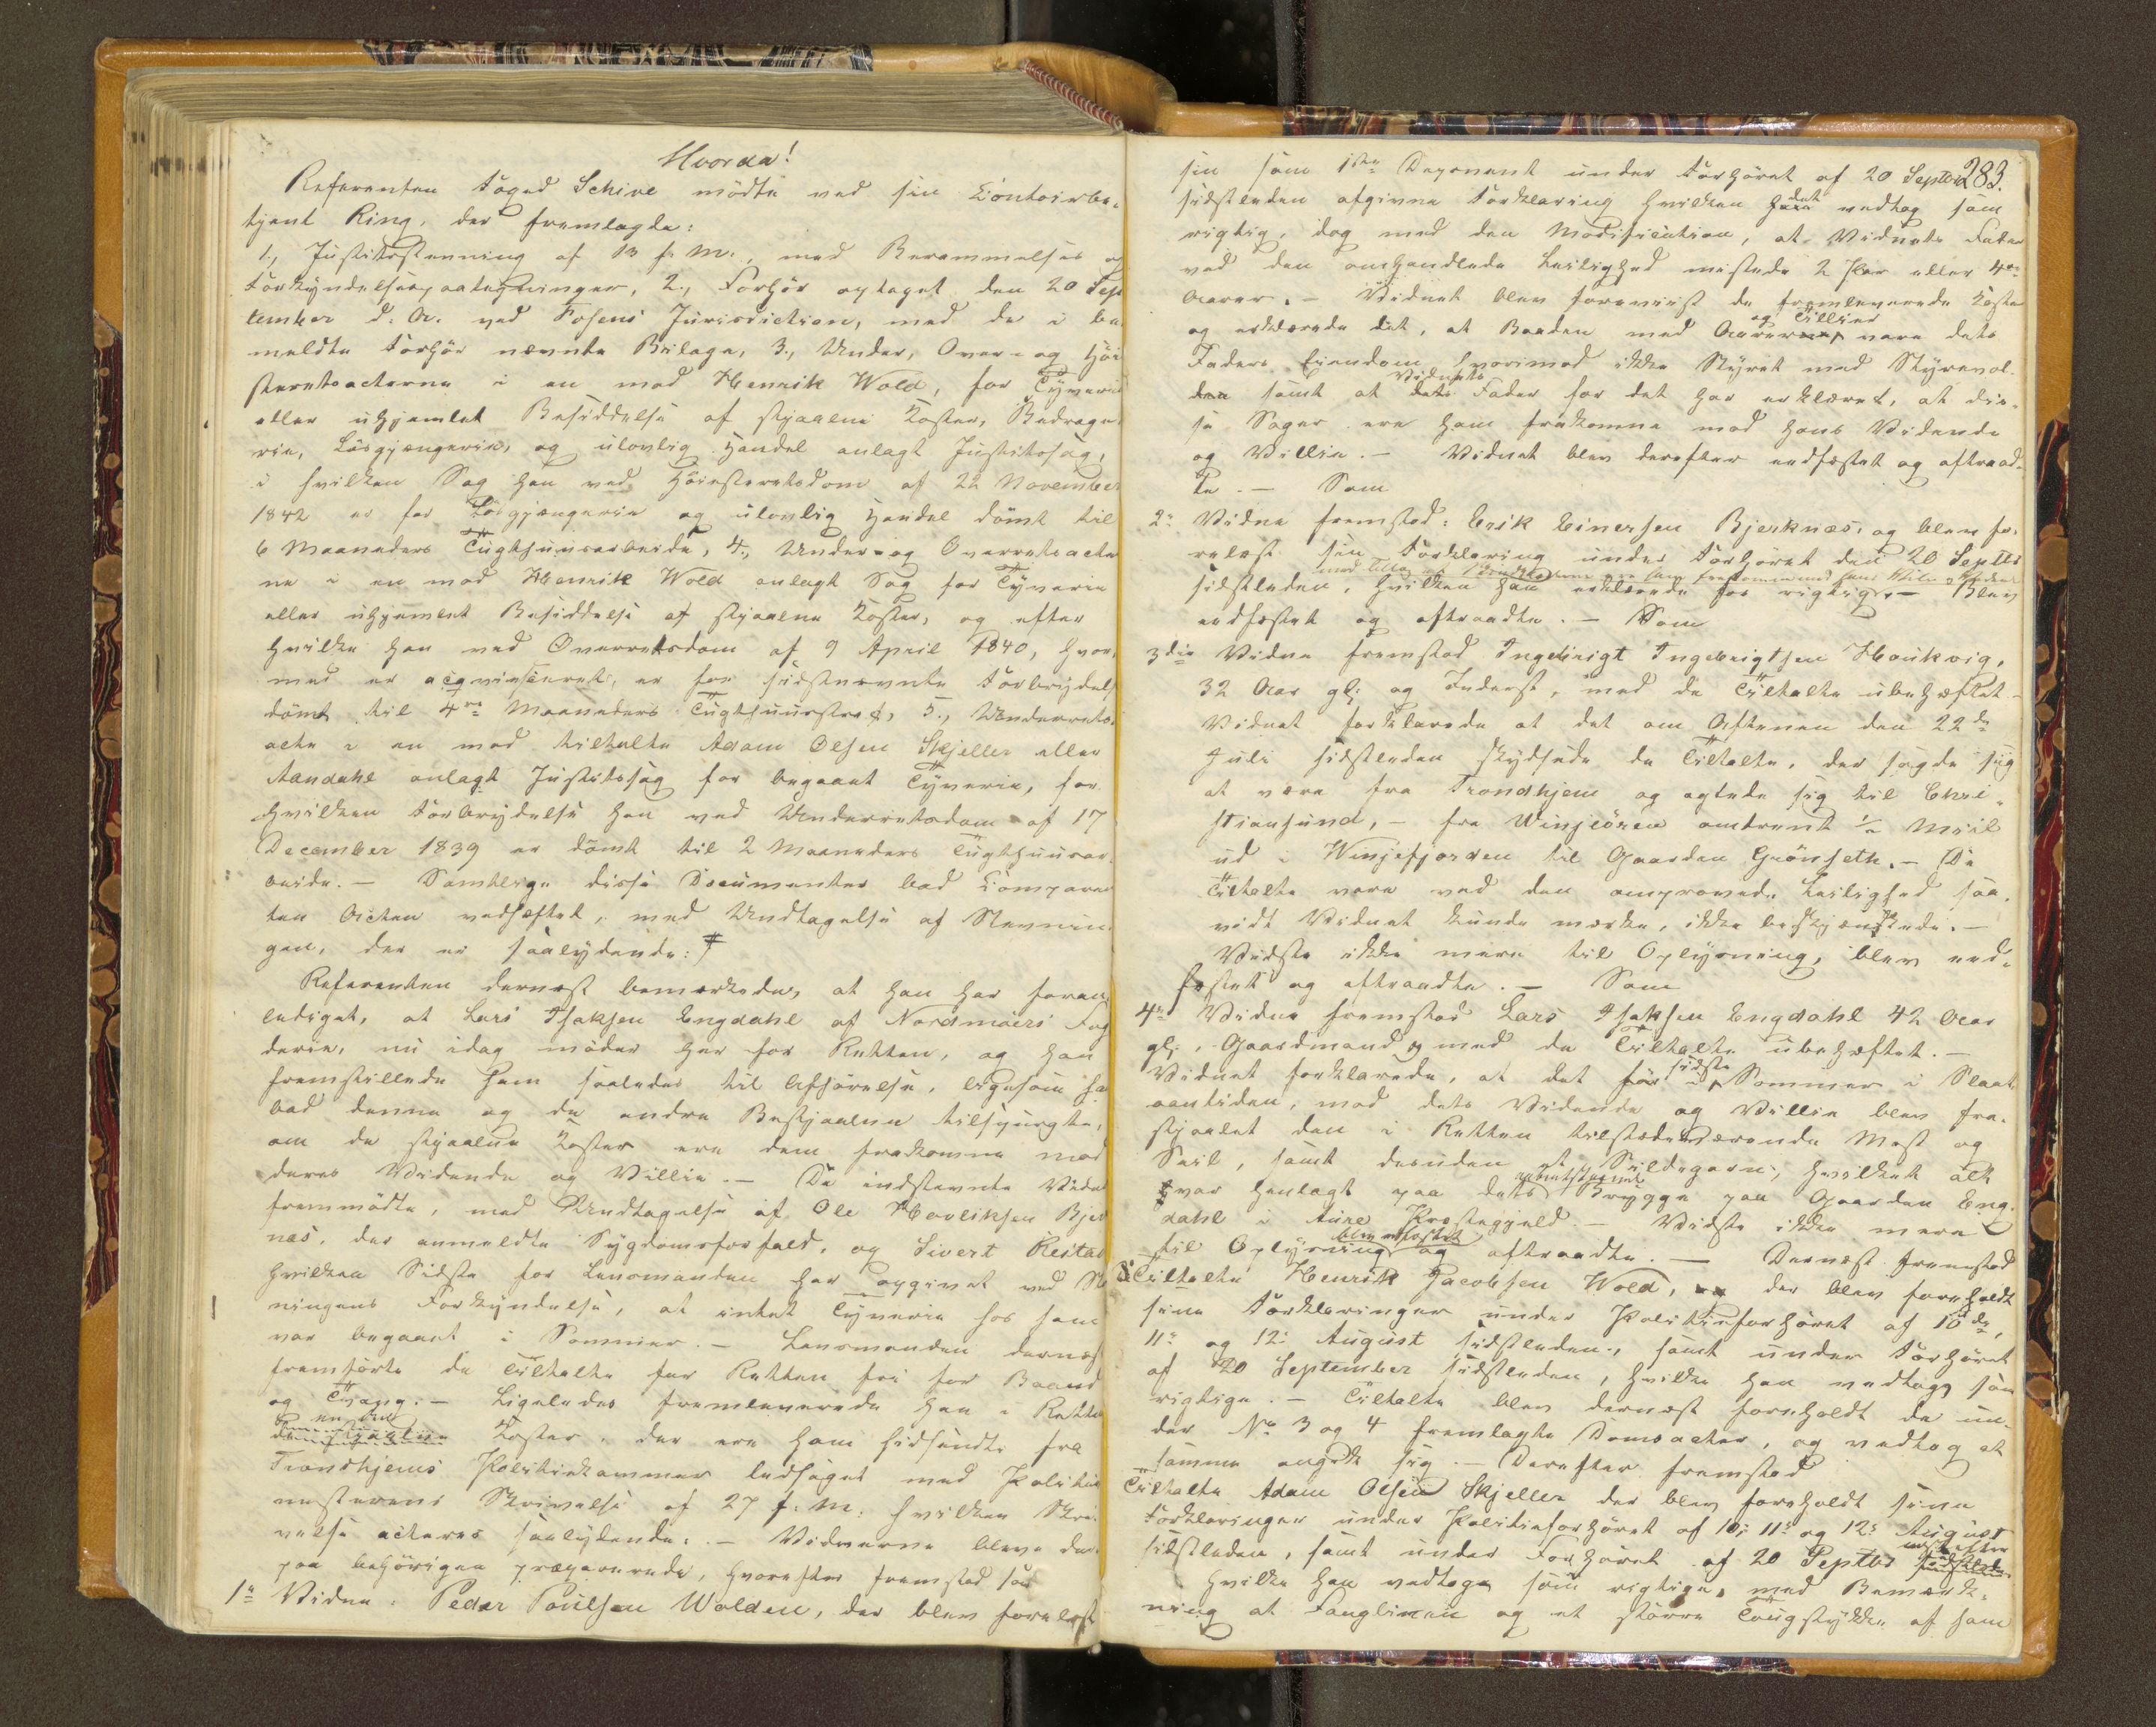 Hvorda!
Referenten Foged Schive mödte ved sin Contoirbe-
tjent Ring, der fremlagde:
1., Justitsstevning af 13 f. M., med Berammelses og
Forkyndelsespaategninger, 2., Forhör optaget den 20 Sep
tember d. A. ved Fosens Jurisdiction, med de i be-
meldte Forhör nævnte Bilage, 3., Under, Over- og Höi
steretsacterne i en mod Henrik Wold, for Tyverie
eller uhjemlet Besiddelse af stjaalne Koster, Bedrage-
rie, Lösgjængerie, og ulovlig Handel anlagt Justitssag,
i hvilken Sag han ved Höiesteretsdom af 22 November
1842 er for Lösgjængerie og ulovlig Handel dömt til
6 Maaneders Tugthuusarbeide, 4., Under- og Overretsacter
ne i en mod Henrik Wold anlagt Sag for Tyverie
eller uhjemlet Besiddelse af stjaalne Koster, og efter
hvilke han ved Overretsdom af 9 April 1840, hvor
med er acqviesceret, er for sidstnævnte Forbrydelse
dömt til 4re Maaneders Tugthuusstraf, 5., Underrets-
acte i en mod tiltalte Adam Olsen Skjelle eller
Aandahl anlagt Justitssag for begaaet Tyverie, for
hvilken Forbrydelse han ved Underretsdom af 17
December 1839 er dömt til 2 Maaneders Tugthuusar-
beide. – Samtlige disse Documenter bad Comparen
ten Acten vedhæftet, med Undtagelse af Stevnin-
gen, der er saalydende: #
Referenten dernæst bemærkede, at han har foran-
lediget, at Lars Isaksen Engdahl af Nordmöers Fog
derie, nu idag möder her for Retten, og han
fremstillede ham saaledes til Afhörelse, ligesom han
bad denne og de andre Bestjaalne tilspurgte,
om de stjaalne Koster ere dem frakomne mod
deres Vidende og Villie. – De indstevnte Vidner
fremmödte, med Undtagelse af Ole Haveliksen Bjerk
næs, der anmeldte Sygdomsforfald, og Sivert Reitan
hvilken Sidste for Lensmanden har opgivet ved Stev
ningens Forkyndelse, at intet Tyverie hos ham
var begaaet i Sommer. – Lensmanden dernæst
fremförte de Tiltalte for Retten fri for Baand
og Tvang. – Ligeledes fremleverede han i Retten
de stjaalne Koster, der ere ham tilsendte fra
Trondhjems Politiekammer ledsaget med Politie
mesterens Skrivelse af 27 f. M. hvilken Skri-
velse acteres saalydende: – Vidnerne bleve der-
paa behörigen præparerede, hvorefter fremstod som
1e Vidne: Peder Poulsen Wolden, der blev forelæst
283.
sin som 1ste Deponent under Forhöret af 20 Septbr
sidstleden afgivne Forklaring hvilken det vedtog som
rigtig, dog med den Modification, at Vidnets Fader
ved den omhandlede Leilighed mistede 2 Par eller 4re
Aarer. – Vidnet blev foreviist de fremleverede Koster
og erklærede det, at Baaden med Aarer og Tillier vare dets
Faders Eiendom hvorimod ikke Styret med Styrevol-
den samt at Vidnets Fader for det har erklæret, at dis-
se Sager ere ham frakomne mod hans Vidende
og Villie. – Vidnet blev derefter eedfæstet og aftraad-
te. – Som
2e Vidne fremstod: Erik Einersen Bjerknæs, og blev fo-
relæst sin Forklaring under Forhöret den 20 Septbr
sidstleden, hvilken han erklærede for rigtig. – Blev
eedfæstet og aftraadte. – Som
3die Vidne fremstod Ingebrigt Ingebrigtsen Haukvig,
32 Aar gl: og Inderst, med de Tiltalte ubehæftet –
Vidnet forklarede at det om Aftenen den 22de
Juli sidstleden skydsede de Tiltalte, der sagde sig
at være fra Trondhjem og agtede sig til Chri-
stiansund, – fra Winjeören omtrent ½ Miil
ud i Winjefjorden til Gaarden Grönseth. – De
Tiltalte vare ved den ommprovede Leilighed saa-
vidt Vidnet kunde mærke, ikke beskjænkede. –
Vidste ikke mere til Oplysning, blev eed-
fæstet og aftraadte. – Som
4e Vidne fremstod Lars Isaksen Engdahl 42 Aar
gl:, Gaardmand og med de Tiltalte ubehæftet. –
Vidnet forklarede, at det for sidste Sommer i Slaat
aantiden, mod dets Vidende og Villie blev fra-
stjaalet den i Retten tilstedeværende Mast og
Seil, samt desuden et Sildegarn, hvilket alt
var henlagt paa dets Brygge paa Gaarden Eng-
dahl i Aure Præstegjæld. – Vidste ikke mere
til Oplysning blev eedfæstet og aftraadte. – Dernæst fremstod
Tiltalte Henrik Jacobsen Wold, der blev foreholdt
sine Forklaringer under Politieforhöret af 10de,
11e og 12e August sidstleden, samt under Forhöret
af 20 September sidstleden, hvilke han vedtog som
rigtige. – Tiltalte blev dernæst foreholdt de un-
der No 3 og 4 fremlagte Domsacter, og vedtog at
samme angik sig. – Derefter fremstod
Tiltalte Adam Olsen Skjelle der blev foreholdt sine
Forklaringer under Politieforhöret af 10e 11e og 12e August
sidstleden, samt under Forhöret af 20 Septbr
hvilke han vedtog som rigtige, med Bemærk-
ning at Fanglinen og et större Tougstykke af ham